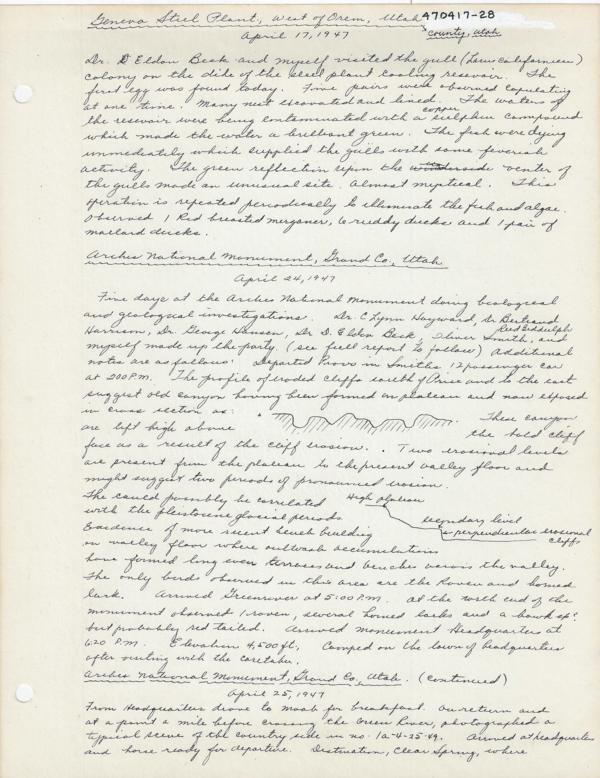 Geneva Steel Plant, West of Orem, Utah 470417-28
County, Utah
April 17, 1947
Dr. D Eldon Beck and myself visited the gull (Larus californicus)
colony on the dike of the steel plant cooling resevoir. The
first egg was found today. Five pairs were observed copulating
at one time. Many nest excavated and lined. The waters of
the resevoir were being contaminated with a copper sulphur compound
which made the water a brilliant green. The fish were dying
immediately which supplied the gulls with some feverish
activity. The green reflection upon the venter of
the gulls made an unusual site. Almost mystical. This
operation is repeated periodically to eliminate the fish and algae.
Observed 1 Red breasted merganser, 6 ruddy ducks and 1 pair of
mallard ducks.
Arches National Monument, Grand Co., Utah
April 24, 1947
Five days at the Arches National Monument doing biological
and geological investigations. Dr. C Lynn Hayward, Dr Bertrand
Harrison, Dr. George Hansen, Dr D. Eldon Beck, Oliver Smith, Reed Biddulph and
myself made up the party. (see full report to follow) Additional
notes are as follows: Departed Provo in Smiths 12 passenger car
at 2:00 P.M. The profile of eroded cliffs south of Price and to the east
suggest old canyon having been formed on plateau and now exposed
in cross section as: These canyon
are left high above the bold cliff
face as a result of the cliff erosion. Two erosional levels
are present from the plateau to the present valley floor and
might suggest two periods of pronounced erosion.
The could possibly be correlated High plateau
with the pleistocene glacial periods secondary level
Evidence of more recent bench building perpendicular erosional
cliffs
on valley floor where outwash accumulations
have formed long even terrases and benches across the valley.
The only birds observed in this area are the Raven and horned
lark. Arrived Greenriver at 5:00 P.M. At the north end of the
monument observed 1 raven, several horned larks and a hawk sp?
but probably red tailed. Arrived monument Headquarters at
6:20 P.M. Elevation 4,500 ft. Camped on the lawn of headquarters
after visiting with the caretaker.
Arches National Monument, Grand Co, Utah. (continued)
April 25, 1947
From Headquarters drove to Moab for breakfast. On return and
at a point a mile before crossing the Green River, photographed a
typical scene of the country side in no. 1a-4-25-49. Arrived at headquarters
and horse ready for departure. Destination, Clear Spring, where